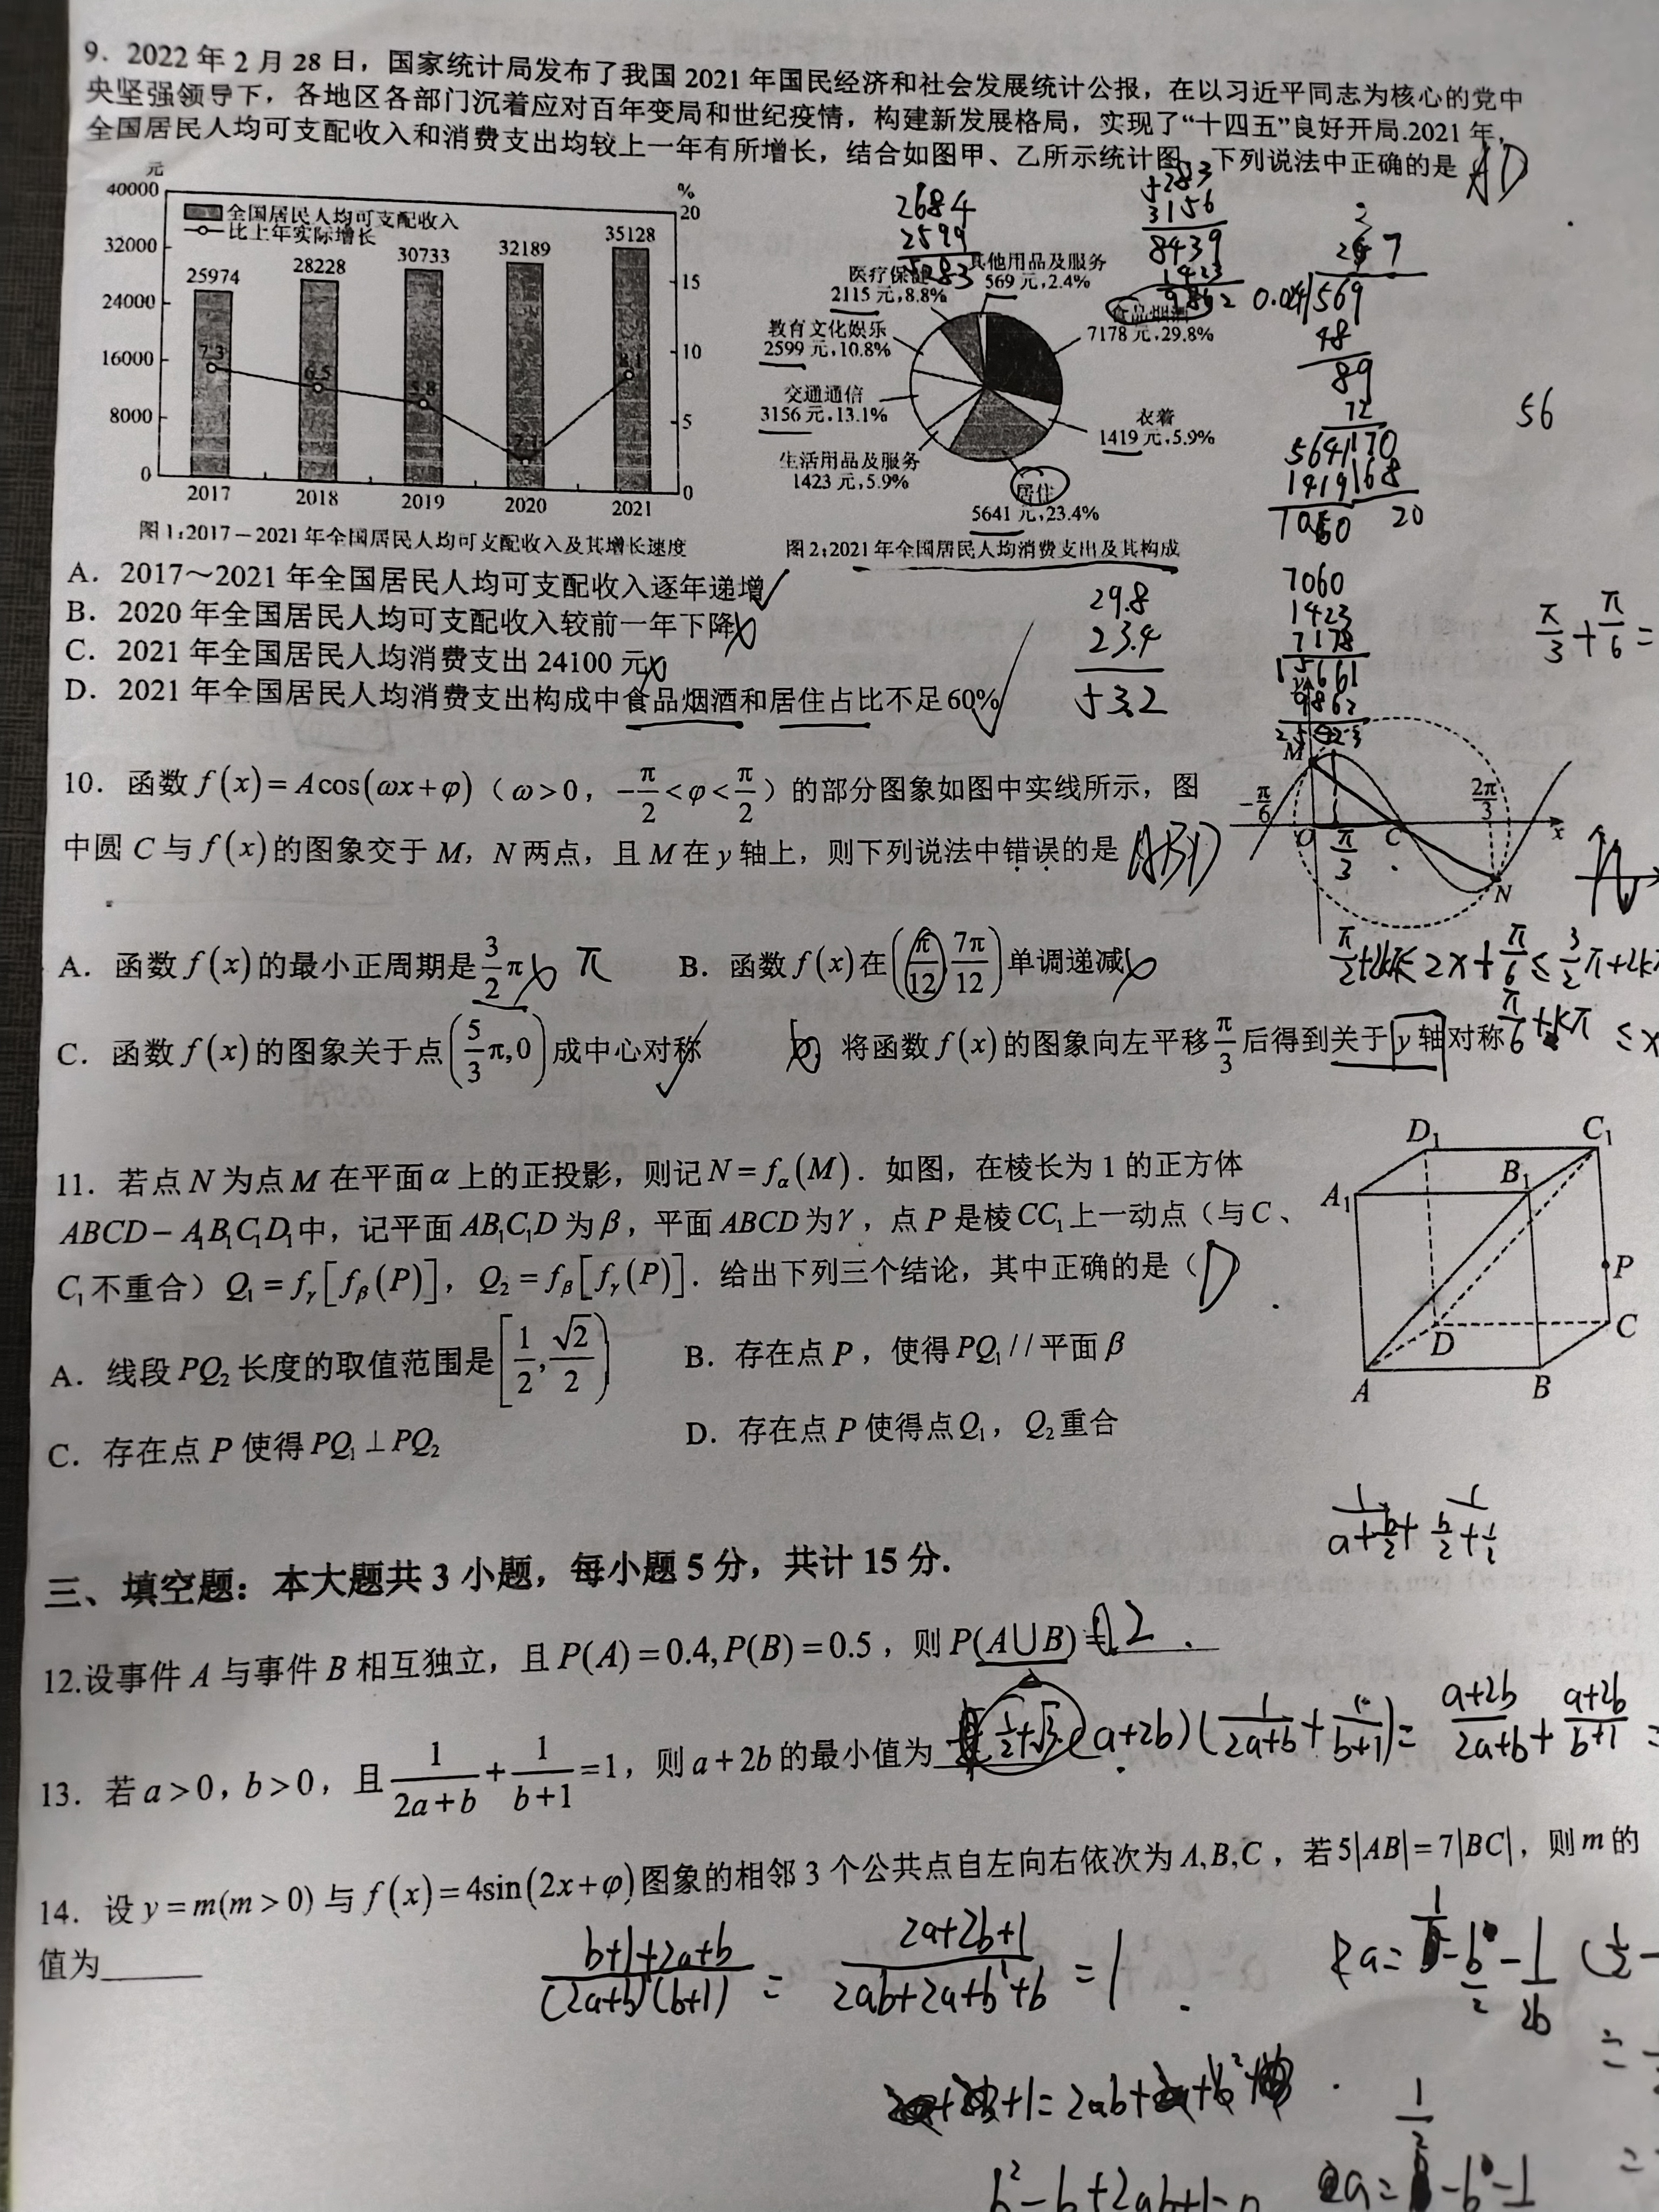 9. 2022 年 2 月 28 日，国家统计局发布了我国 2021 年国民经济和社会发展统计公报，在以习近平同志为核心的党中
央坚强领导下，各地区各部门沉着应对百年变局和世纪疫情，构建新发展格局，实现了“十四五”良好开局.2021 年，
全国居民人均可支配收入和消费支出均较上一年有所增长，结合如图甲、乙所示统计图，下列说法中正确的是 AD
元
40000
32000
24000
16000
8000
0
%
20
15
10
5
0
全国居民人均可支配收入
比上年实际增长
25974
28228
30733
32189
35128
7.3
6.5
5.8
2.1
8.1
2017 2018 2019 2020 2021
图 1:2017－2021 年全国居民人均可支配收入及其增长速度
医疗保健
2115 元,8.8%
其他用品及服务
569 元,2.4%
食品烟酒
7178 元,29.8%
教育文化娱乐
2599 元,10.8%
交通通信
3156 元,13.1%
衣着
1419 元,5.9%
生活用品及服务
1423 元,5.9%
居住
5641 元,23.4%
图 2:2021 年全国居民人均消费支出及其构成
2684
2599
5283
3156
8439
1423
9862
0.024
569
48
89
72
170
168
20
5641
1419
7060
56
A. 2017～2021 年全国居民人均可支配收入逐年递增
B. 2020 年全国居民人均可支配收入较前一年下降
C. 2021 年全国居民人均消费支出 24100 元
D. 2021 年全国居民人均消费支出构成中食品烟酒和居住占比不足 60%
29.8
23.4
53.2
7060
1423
7178
15661
9862
π/3+π/6=
10. 函数 f(x)=Acos(ωx+φ)（ω>0，-π/2<φ<π/2）的部分图象如图中实线所示，图
中圆 C 与 f(x)的图象交于 M，N 两点，且 M 在 y 轴上，则下列说法中错误的是 ABD
M
-π/6
O
π/3
C
2π/3
x
N
A. 函数 f(x)的最小正周期是 3/2 π π
B. 函数 f(x)在(π/12, 7π/12)单调递减
C. 函数 f(x)的图象关于点(5/3 π,0)成中心对称
将函数 f(x)的图象向左平移 π/3 后得到关于 y 轴对称
π/2+2kπ≤2x+π/6≤3/2π+2kπ
π/6+kπ≤x
11. 若点 N 为点 M 在平面 α 上的正投影，则记 N=fα(M). 如图，在棱长为 1 的正方体
ABCD－A₁B₁C₁D₁中，记平面 AB₁C₁D 为 β，平面 ABCD 为 γ，点 P 是棱 CC₁上一动点（与 C、
C₁不重合）Q₁=fγ[fβ(P)]，Q₂=fβ[fγ(P)]. 给出下列三个结论，其中正确的是（D）
A. 线段 PQ₂长度的取值范围是[1/2, √2/2)
B. 存在点 P，使得 PQ₁//平面 β
C. 存在点 P 使得 PQ₁⊥PQ₂
D. 存在点 P 使得点 Q₁，Q₂重合
D₁
C₁
A₁
B₁
P
D
C
A
B
三、填空题：本大题共 3 小题，每小题 5 分，共计 15 分.
12.设事件 A 与事件 B 相互独立，且 P(A)=0.4,P(B)=0.5，则 P(A∪B)=0.2
13. 若 a>0，b>0，且 1/(2a+b)+1/(b+1)=1，则 a+2b 的最小值为 1/2+√3
(a+2b)(1/(2a+b)+1/(b+1))=(a+2b)/(2a+b)+(a+2b)/(b+1)=
14. 设 y=m(m>0)与 f(x)=4sin(2x+φ)图象的相邻 3 个公共点自左向右依次为 A,B,C，若 5|AB|=7|BC|，则 m 的
值为______
(b+1+2a+b)/((2a+b)(b+1))=(2a+2b+1)/(2ab+2a+b²+b)=1